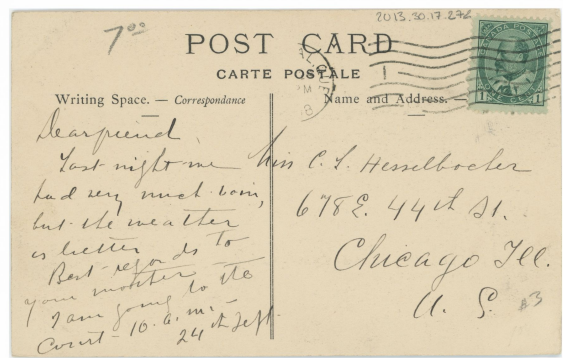 7.00
2013.30.17.276
POST CARD
CARTE POSTALE
CANADA POSTAGE
1 ONE CENT 1
Writing Space. — Correspondance
Name and Address. —
Dear friend
Last night we
had very much rain,
but the weather
is better
Best regards to
your mother
I am going to the
Court - 10. a.m. -
24th Sept.
Miss C. L. Hesselbacher
678 E. 44th St.
Chicago Ill.
U. S.